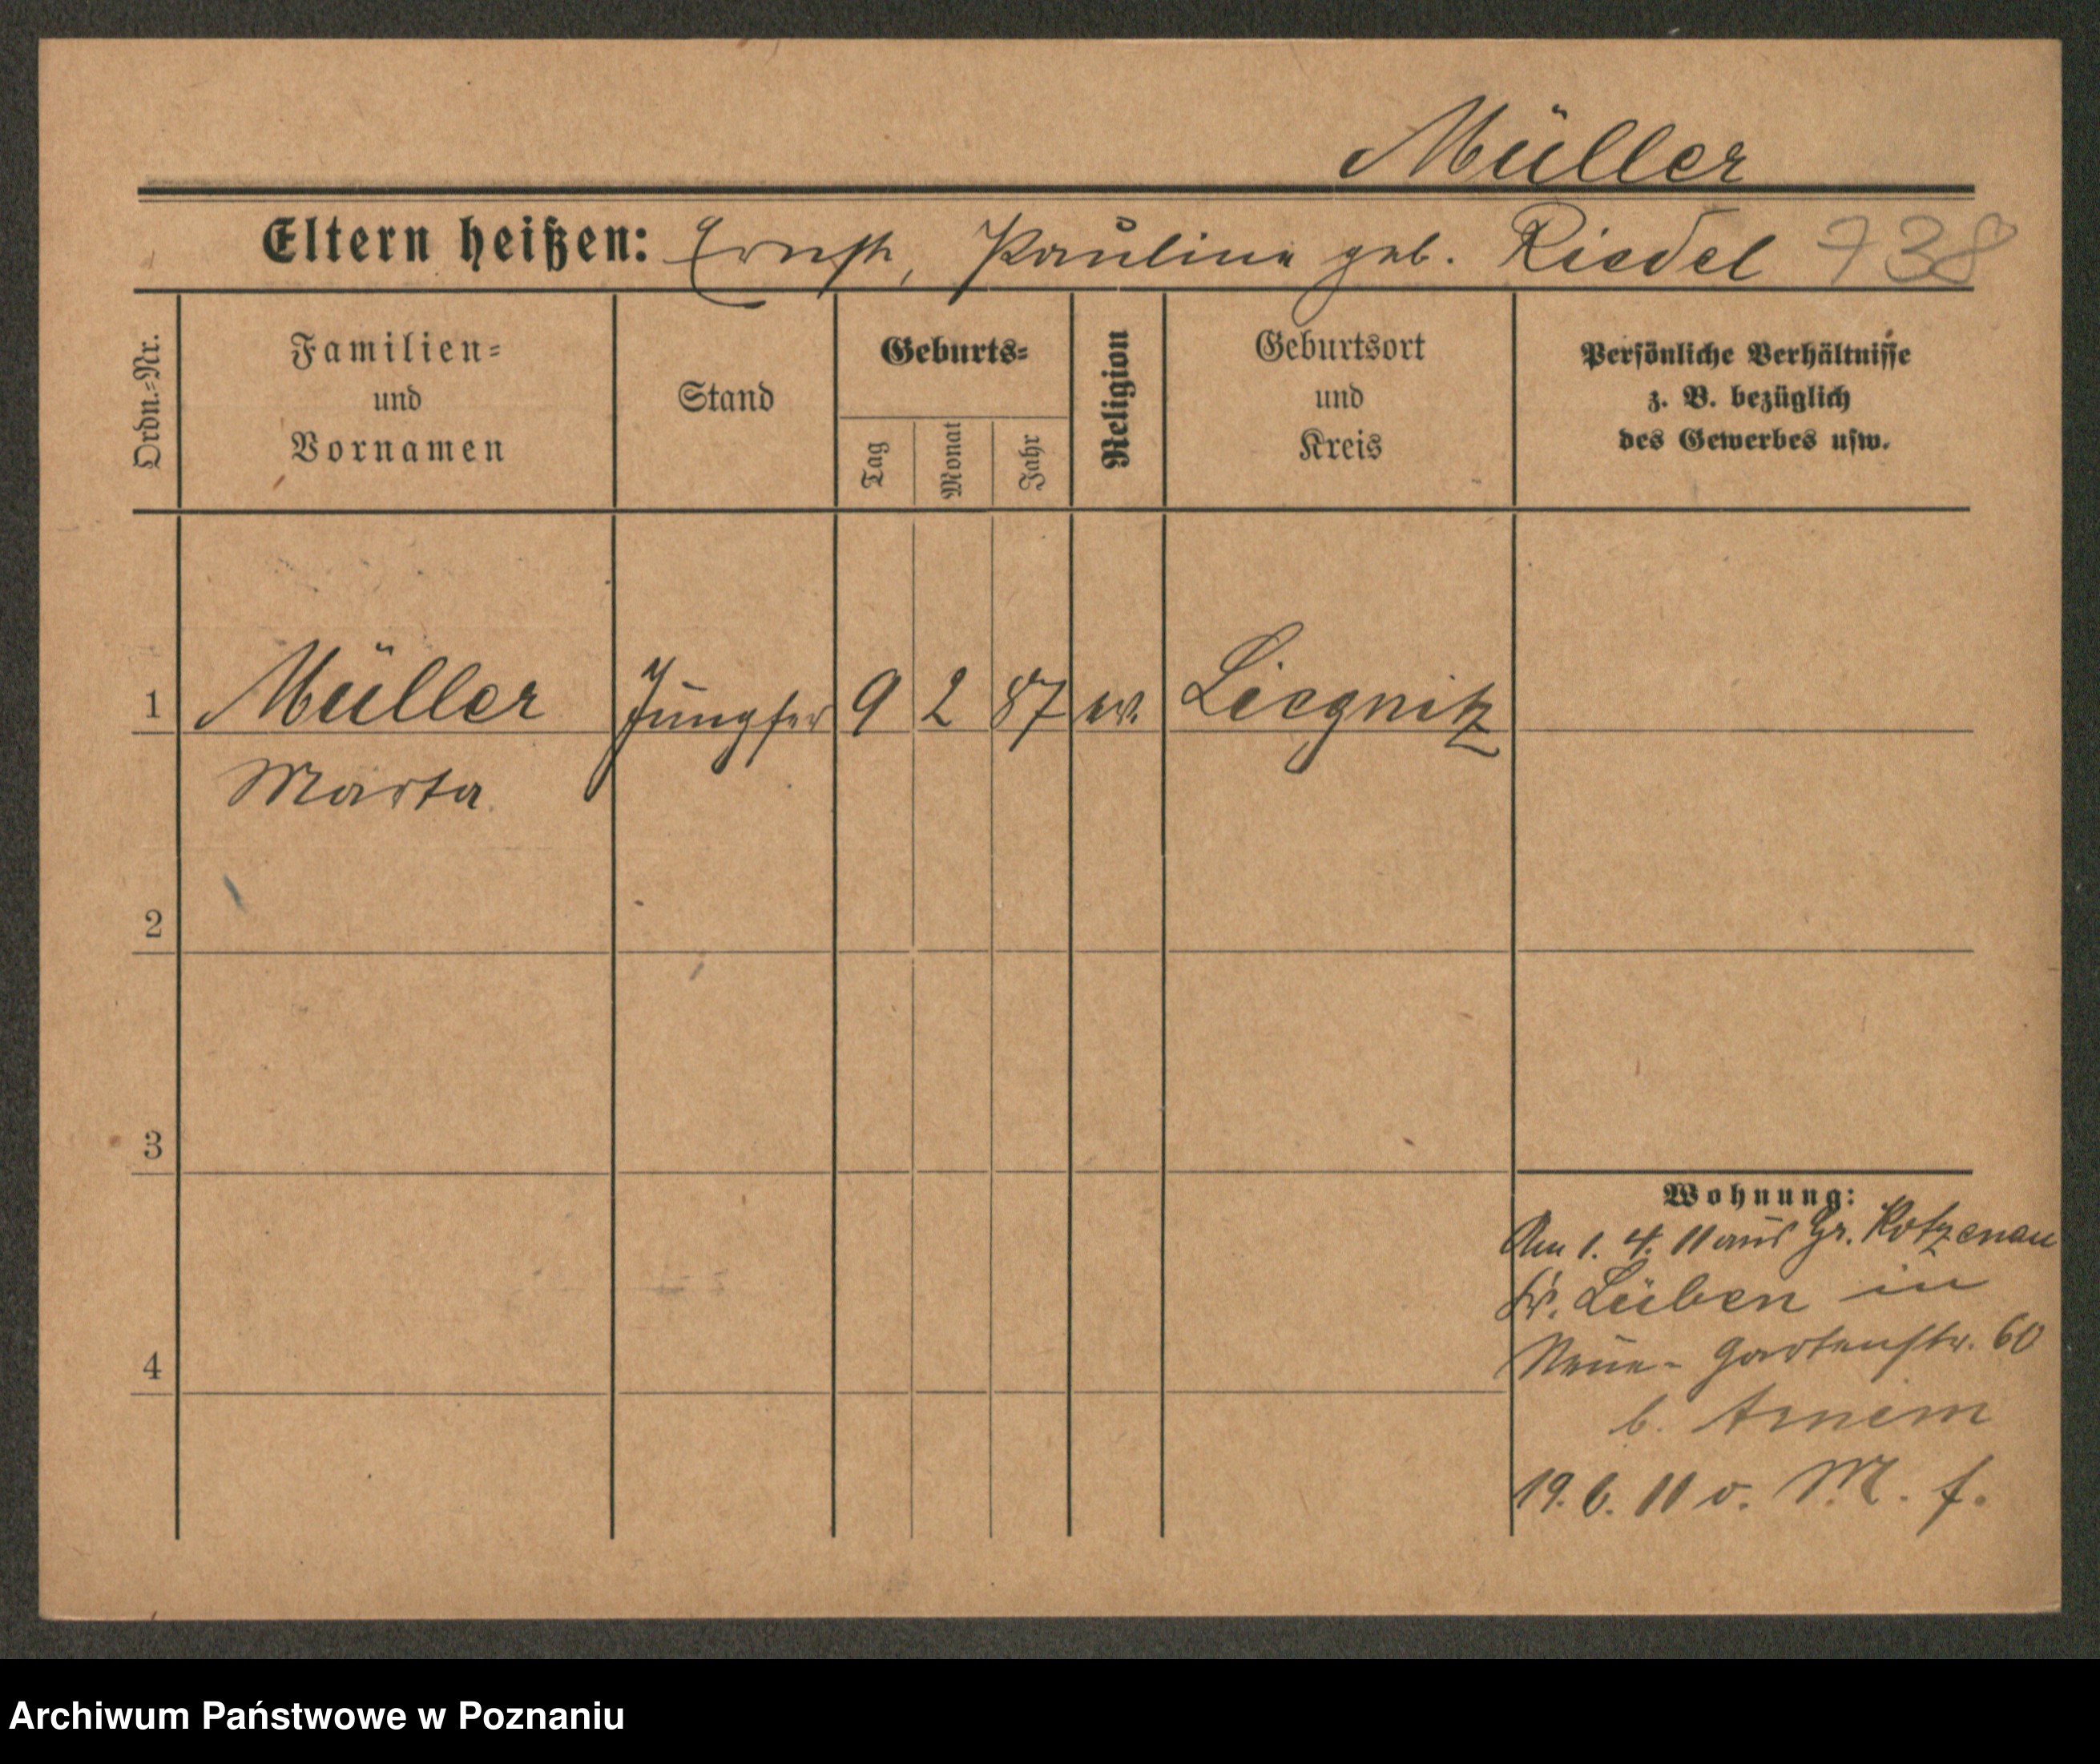 Müller
Eltern heißen: Ernst, Pauline geb. Riedel 738
Ordn.-Nr.
Familien-
und
Vornamen
Stand
Geburts-
Tag
Monat
Jahr
Religion
Geburtsort
und
Kreis
Persönliche Verhältnisse
z. B. bezüglich
des Gewerbes usw.
1 Müller Jungfer 9 2 87 ev. Liegnitz
Marta
2
3
4
Wohnung:
Am 1. 4. 11 aus Gr. Kotzenau
Kr. Lüben in
Neue- Gartenstr. 60
b. Arnim
19. 6. 11 v. M. f.
Archiwum Państwowe w Poznaniu